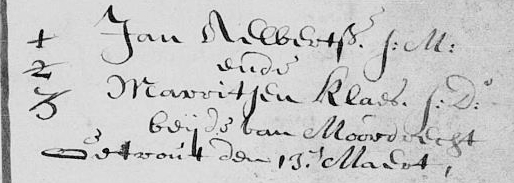 1 Jan Aelbertsz. j: M:
2 ende
3 Marritjen Klaes. j: D:
beijde van Moordrecht
Getrout den 13: Maert,